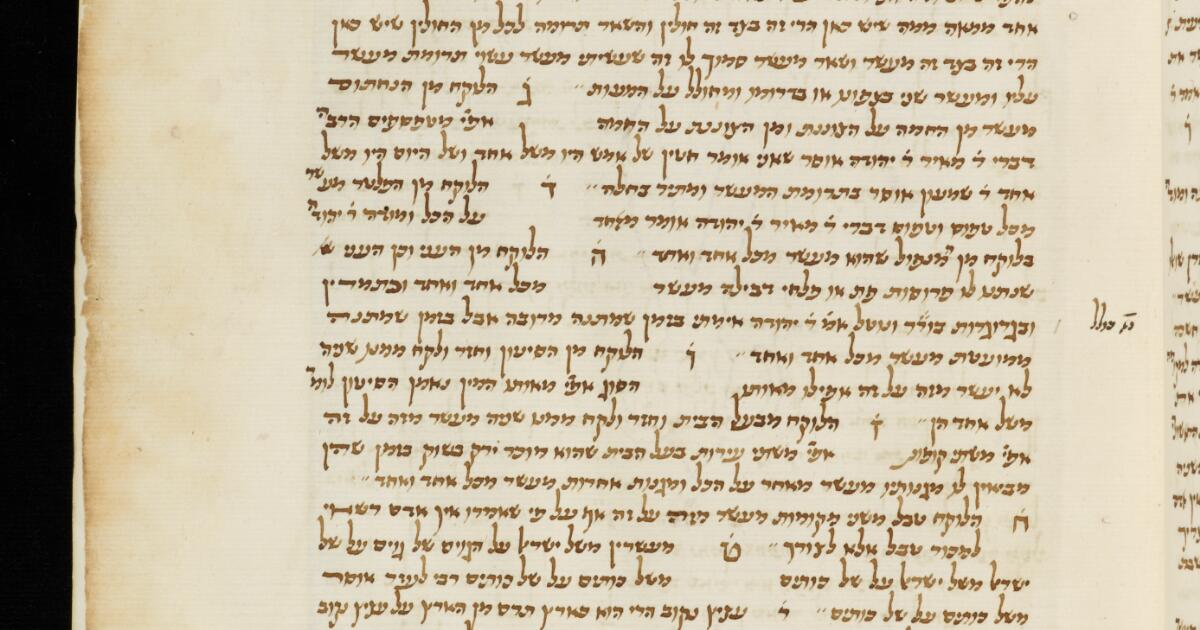 אחד ממאה ממה שיש כאן הרי זה בצד זה חולין והשאר תרומה לכל מן החולין שיש כאן
הרי זה בצד זה מעשר ושאר מעשר סמוך לו זה שעשיתי מעשר עשוי תרומת מעשר
עליו ומעשר שני בצפונו או בדרומו ומחולל על המעות ג הלוקח מן הנחתום
מעשר מן החמה על הצוננת ומן הצוננת על החמה אפי׳ מטפסים הרבה
דברי ר׳ מאיר ר׳ יהודה אוסר שאני אומר חטין של אמש היו משל אחד ושל היום היו משל
אחד ר׳ שמעון אוסר בתרומת המעשר ומתיר בחלה ד הלוקח מן הפלטר מעשר
מכל טפוס וטפוס דברי ר׳ מאיר ר׳ יהודה אומר מאחד על הכל ומודה ר׳ יהודה
בלוקח מן המנפול שהוא מעשר מכל אחד ואחד ה הלוקח מן העני וכן העני ש
שנתנו לו פרוסות פת או פלחי דבילה מעשר מכל אחד ואחד ובתמרים
ובגרוגרות בולל ונוטל אמ׳ ר׳ יהודה אימתי בזמן שמתנה מרובה אבל בזמן שמתנה
ממועטת מעשר מכל אחד ואחד ו הלוקח מן הסיטון וחזר ולקח ממנו שניה
לא יעשר מזה על זה אפילו מאותו הסוג אפי׳ מאותו המין נאמן הסיטון לומר
משל אחד הן ז הלוקח מבעל הבית וחזר ולקח ממנו שניה מעשר מזה על זה
אפי׳ משתי קופות אפי׳ משתי עיירות בעל הבית שהוא מוכר ירק בשוק בזמן שהן
מביאין לו מגנותיו מעשר מאחד על הכל ומגנות אחרות מעשר מכל אחד ואחד
ח הלוקח טבל משני מקומות מעשר מזה על זה אף על פי שאמרו אין אדם רשאי
למכור טבל אלא לצורך ט מעשרין משל ישראל על הגוים של גוים על של
ישראל משל ישראל על של כותים משל כותים על של כותים רבי לעזר אוסר
משל כותים על של כותים י עציץ נקוב הרי הוא כארץ תרם מן הארץ על עציץ נקוב